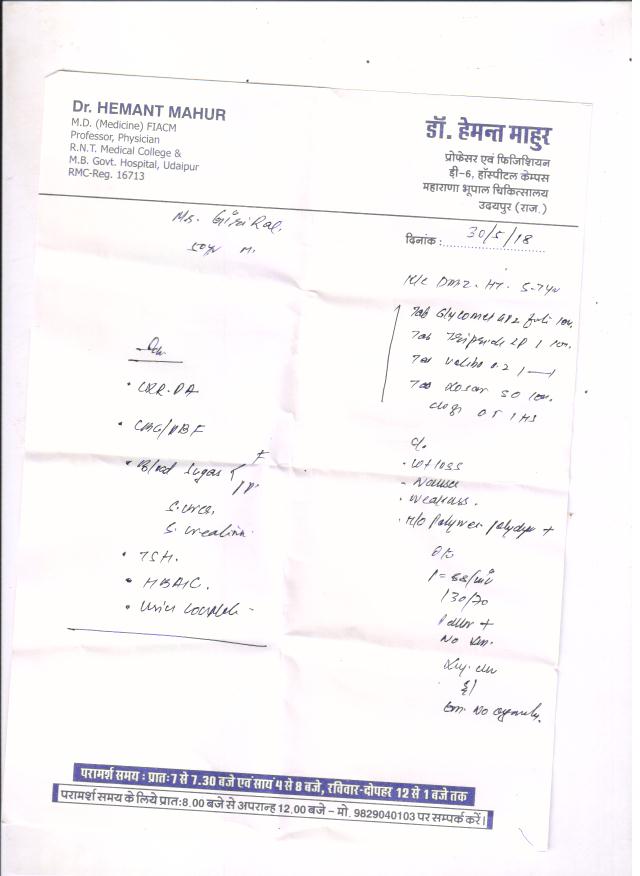 Dr. HEMANT MAHUR
M.D. (Medicine) FIACM
Professor, Physician
R.N.T. Medical College &
M.B. Govt. Hospital, Udaipur
RMC-Reg. 16713
डॉ. हेमन्त माहुर
प्रोफेसर एवं फिजिशियन
डी-6, हॉस्पीटल केम्पस
महाराणा भूपाल चिकित्सालय
उदयपुर (राज.)
दिनांक : 30/5/18
50yr M.
HT. 5-7yr
Tab Glycomet GP2
Tab LP 1
Tab Volibo 0.2 1—1
Tab Losar 50
0.5 1 HS
C/o
• Wt loss
- Nausea
• Weakness.
• H/o +
O/E
130/70
Pallor +
No
No organomegaly.
• CXR-PA
• CBC/PBF
• Blood Sugar F
PP
S. Urea,
S. Creatinine
• TSH.
• HBA1C.
• Urine Complete -
परामर्श समय : प्रातः 7 से 7.30 बजे एवं सायं 4 से 8 बजे, रविवार-दोपहर 12 से 1 बजे तक
परामर्श समय के लिये प्रातः 8.00 बजे से अपरान्ह 12.00 बजे – मो. 9829040103 पर सम्पर्क करें।